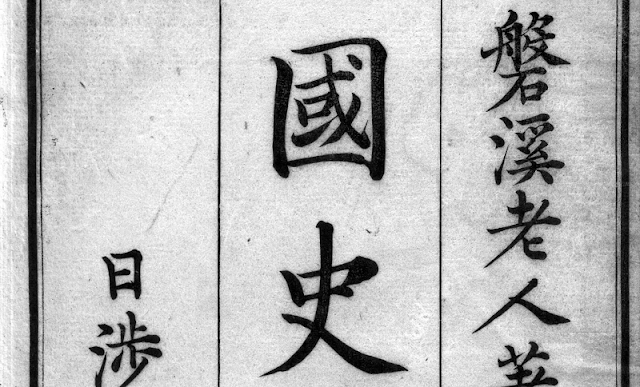 磐溪老人著
國史
日渉